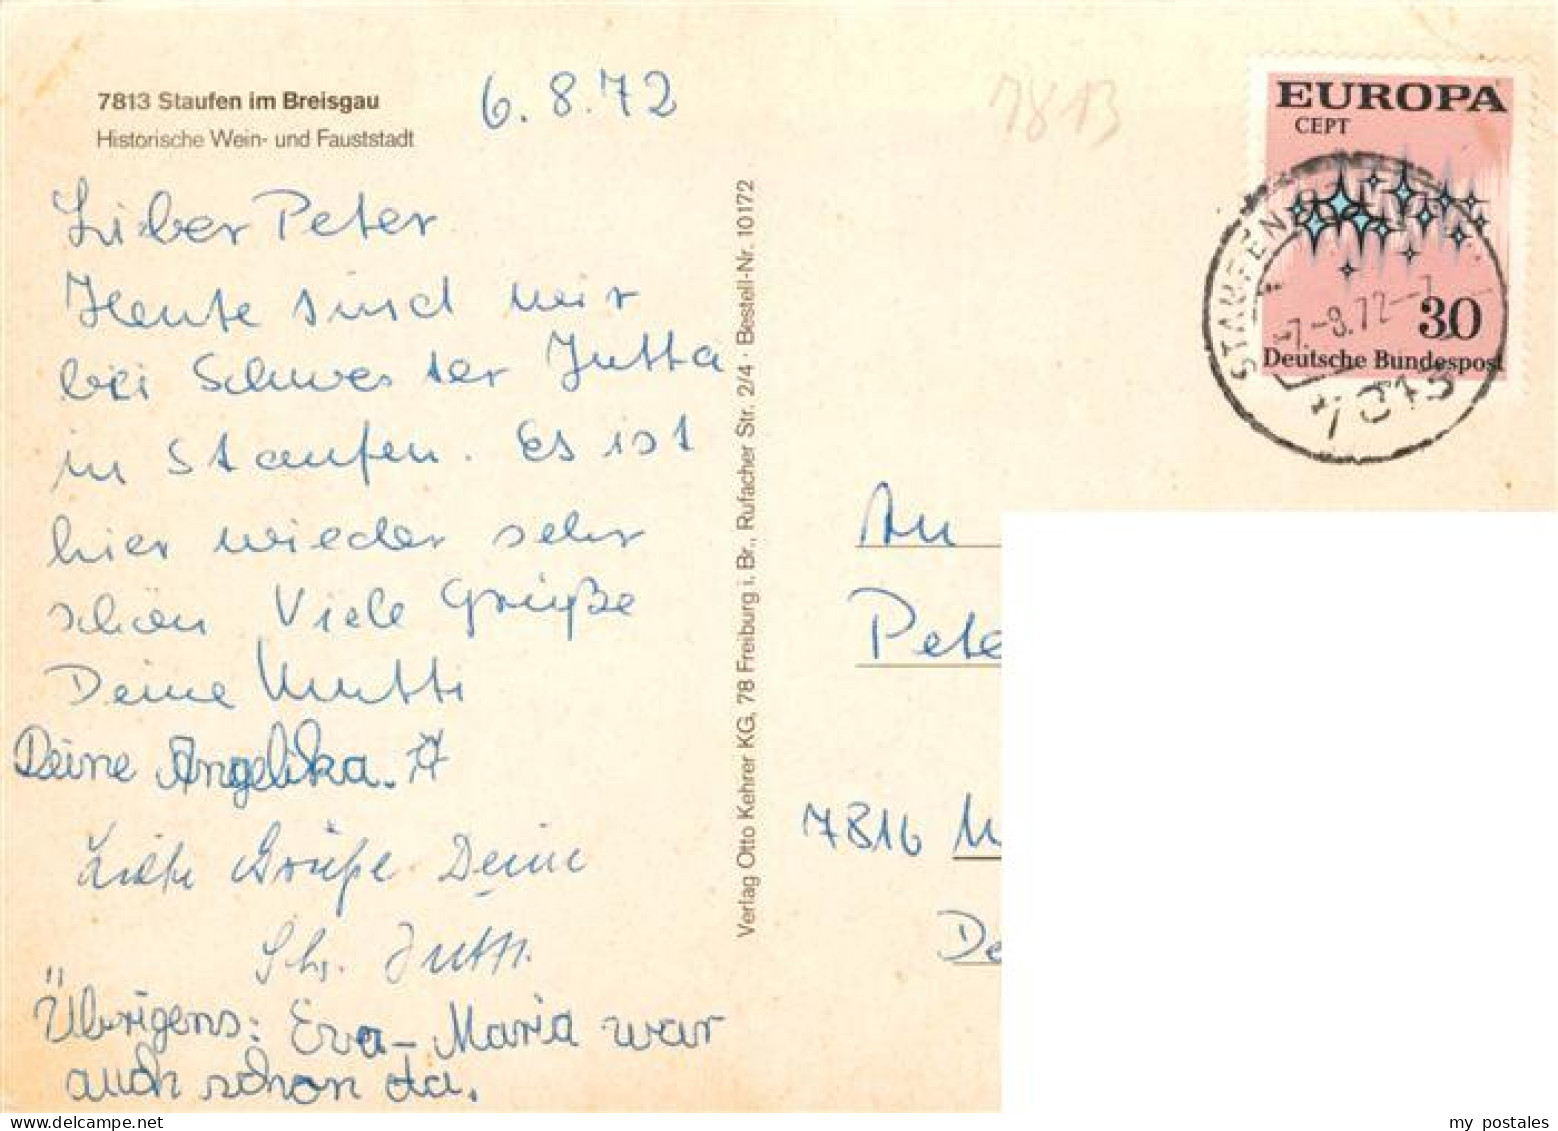 7813 Staufen im Breisgau
Historische Wein- und Fauststadt
6.8.72
Lieber Peter
Heute sind wir
bei Schwester Jutta
in Staufen. Es ist
hier wieder sehr
schön Viele Grüße
Deine Mutti
Deine Angelika.
Liebe Grüße Deine
Schw. Jutta.
Übrigens: Eva-Maria war
auch schon da.
Verlag Otto Kehrer KG, 78 Freiburg i. Br., Rufacher Str. 2/4 · Bestell-Nr. 10172
7813
EUROPA
CEPT
30
Deutsche Bundespost
STAUFEN
7.-8.72--7
7813
An
Pete
7816 M
De
my postales